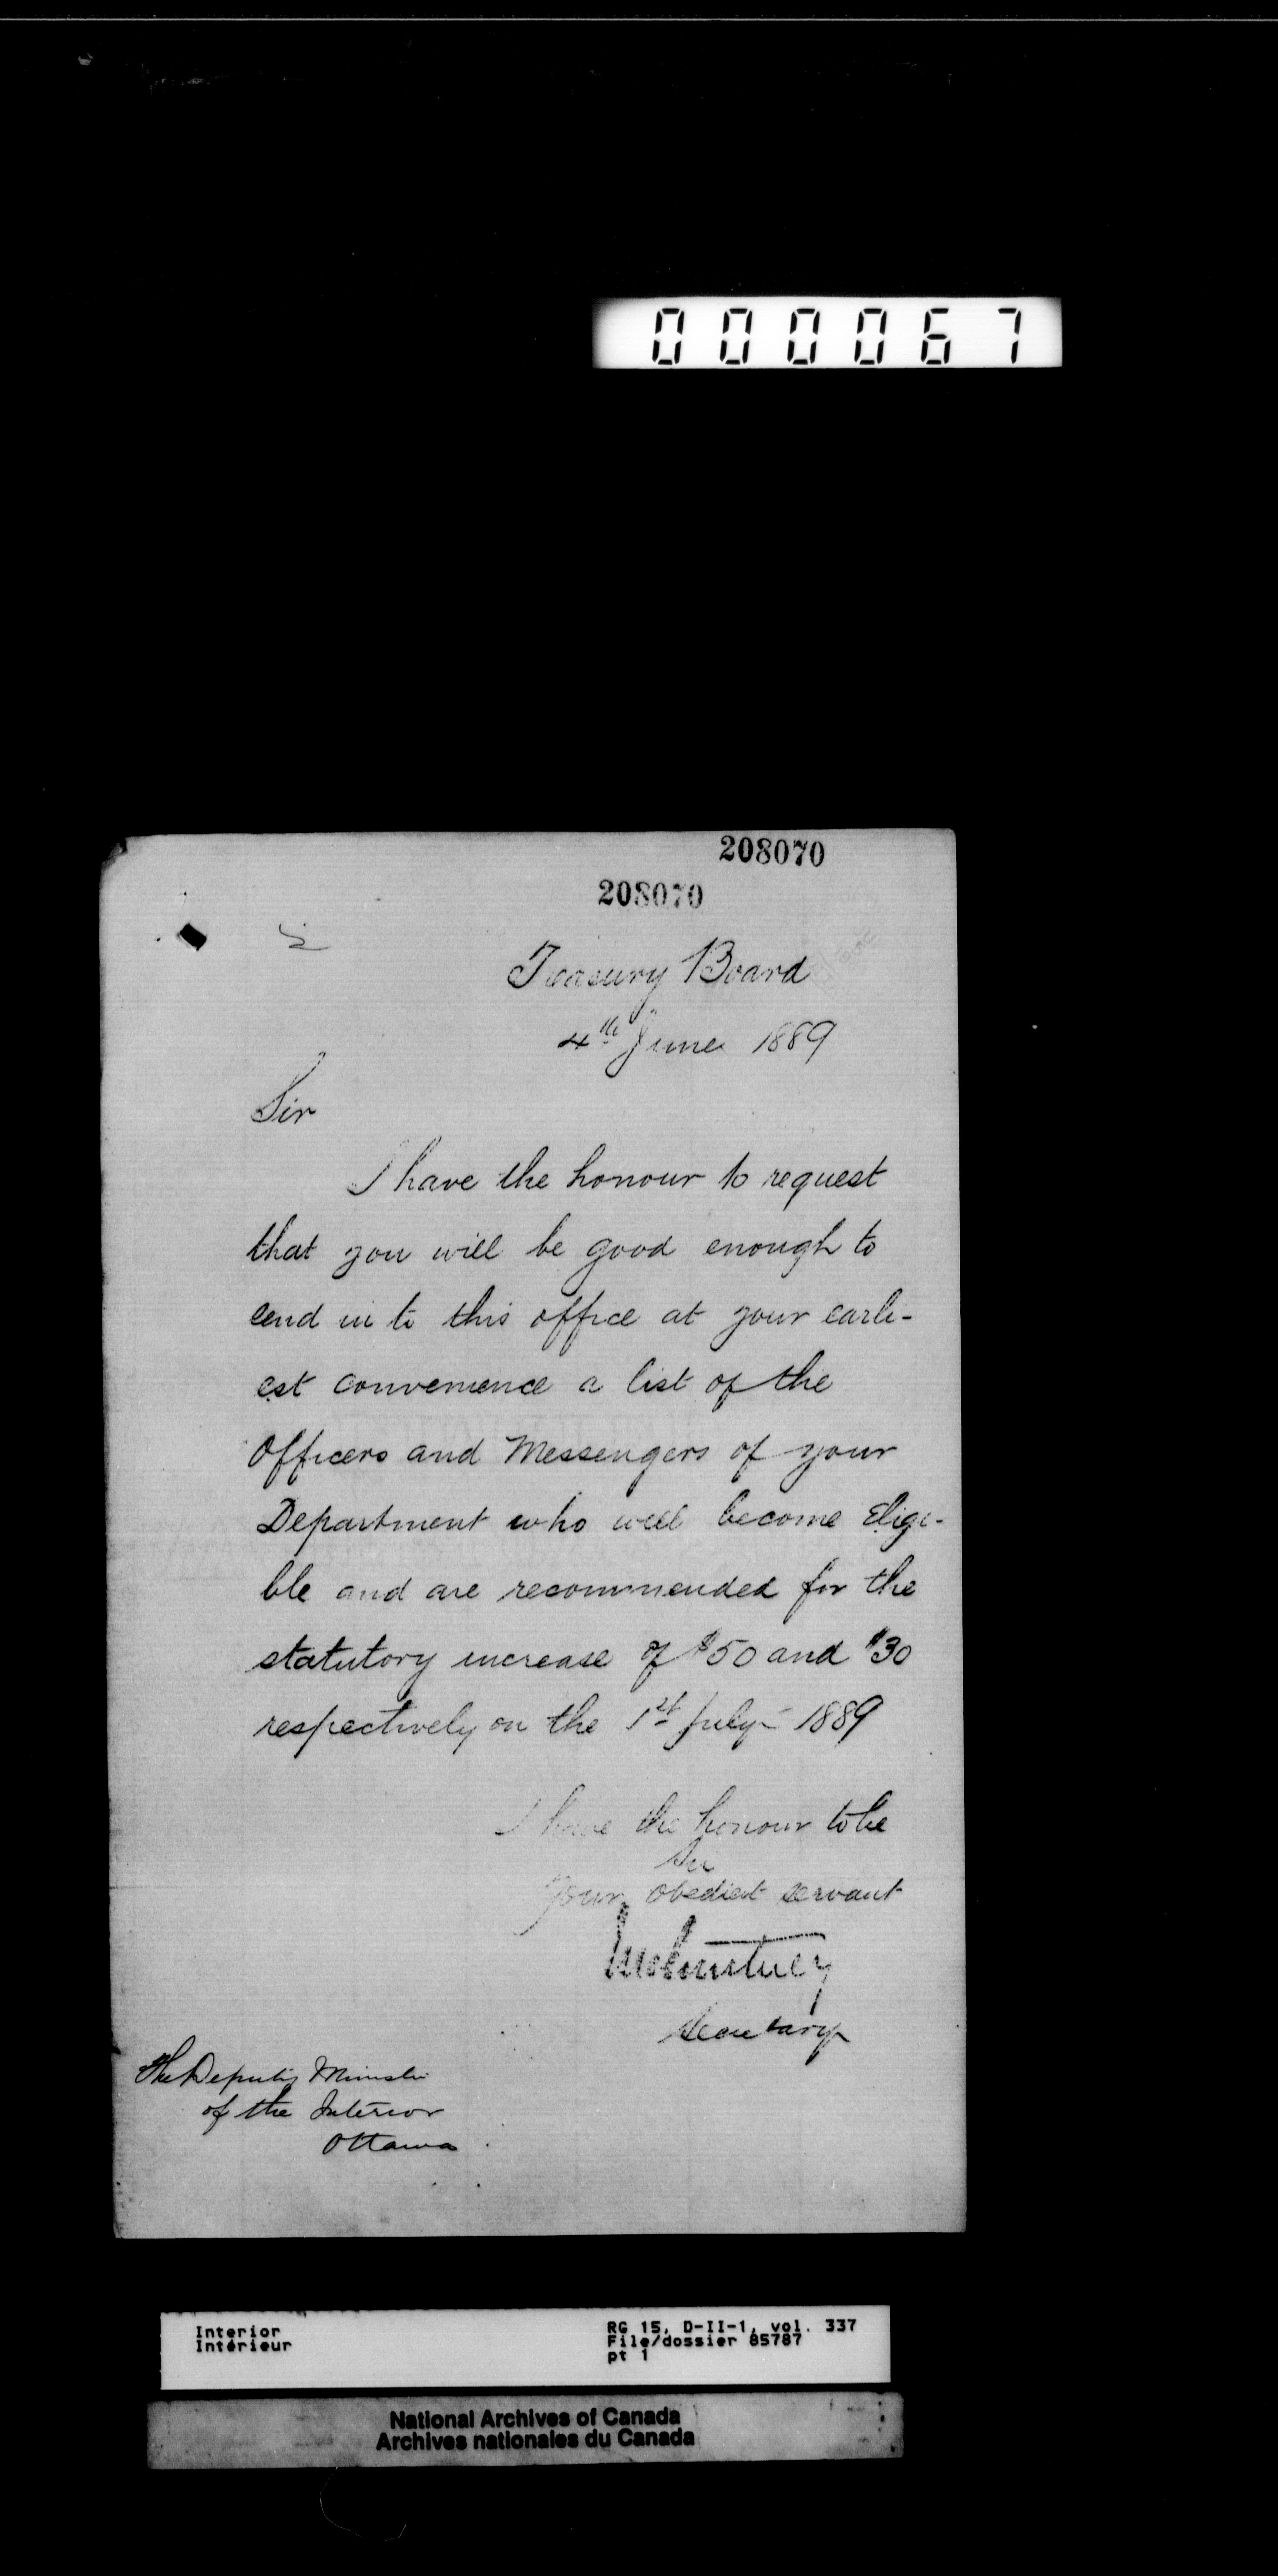 000067
208070
208070
Treasury Board
4th June 1889
Sir
I have the honour to request
that you will be good enough to
send in to this office at your earli-
est convenience a list of the
Officers and Messengers of your
Department who will become Eligi-
ble and are recommended for the
statutory increase of $50 and $30
respectively on the 1st July 1889
I have the honour to be
Sir
Your obedient servant
JMCourtney
Secretary
The Deputy Minister
of the Interior
Ottawa
Interior
Intérieur
RG 15, D-II-1, vol. 337
File/dossier 85787
pt 1
National Archives of Canada
Archives nationales du Canada